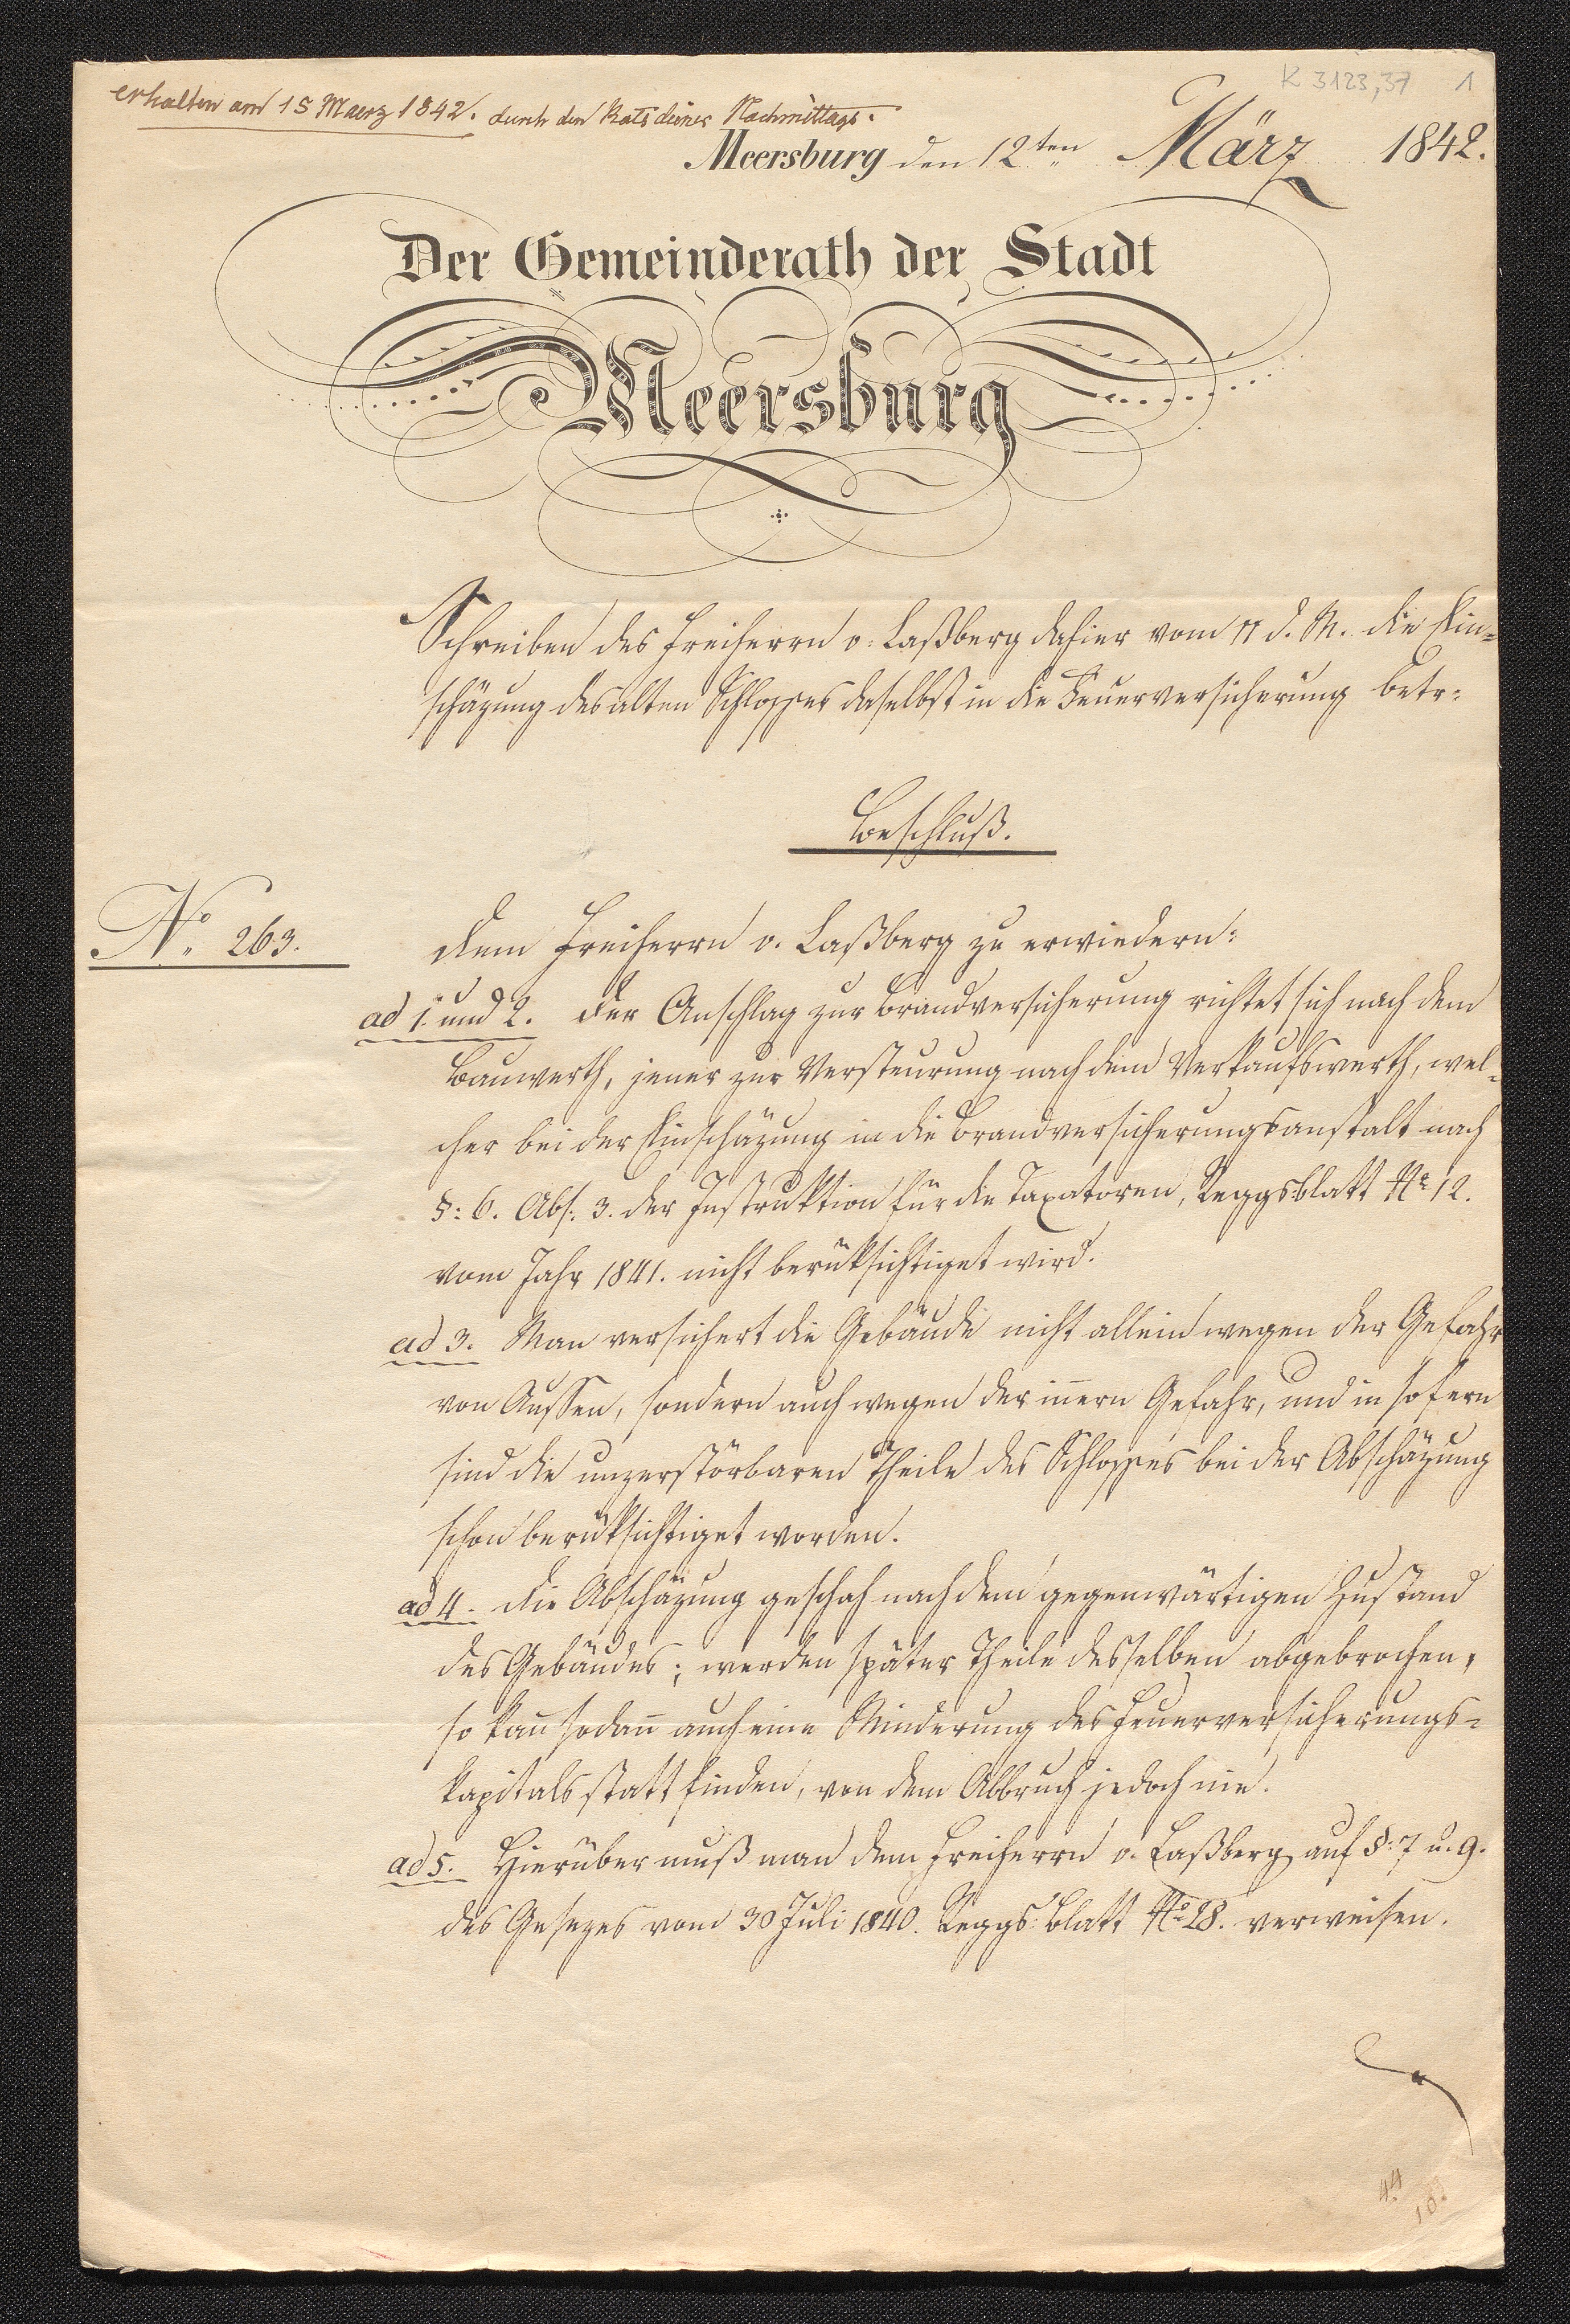 K 3123,37 1
erhalten am 15 Maerz 1842. durch den Ratsdiener Nachmittags.
Meersburg den 12ten März 1842.
Der Gemeinderath der Stadt
Meersburg
Schreiben des Freiherrn v. Laßberg dahier vom 11 d. M. die Ein-
schäzung des alten Schlosses daselbst in die Feuerversicherung betr:
Beschluß.
No 263.
Dem Freiherrn v. Laßberg zu erwiedern:
ad 1. und 2. Der Anschlag zur Brandversicherung richtet sich nach dem
Bauwerth, jener zur Versteurung nach dem Verkaufswerth, wel-
cher bei der Einschäzung in die Brandversicherungsanstalt nach
§: 6. Abs: 3. der Instruktion für die Taxatoren, Reggsblatt No 12.
vom Jahr 1841. nicht berüksichtiget wird.
ad 3. Man versichert die Gebäude nicht allein wegen der Gefahr
von Aussen, sondern auch wegen der inern Gefahr, und in so fern
sind die unzerstörbaren Theile des Schlosses bei der Abschäzung
schon berüksichtiget worden.
ad 4. Die Abschäzung geschah nach dem gegenwärtigen Zustand
des Gebäudes; werden später Theile desselben abgebrochen,
so kan sodan auch eine Minderung des Feuerversicherungs-
kapitals statt finden, vor dem Abbruch jedoch nie.
ad 5. Hierüber muß man dem Freiherrn v. Laßberg auf §: 7 u. 9.
des Gesezes vom 30 Juli 1840. Reggs: Blatt No 28. verweisen.
44
10.